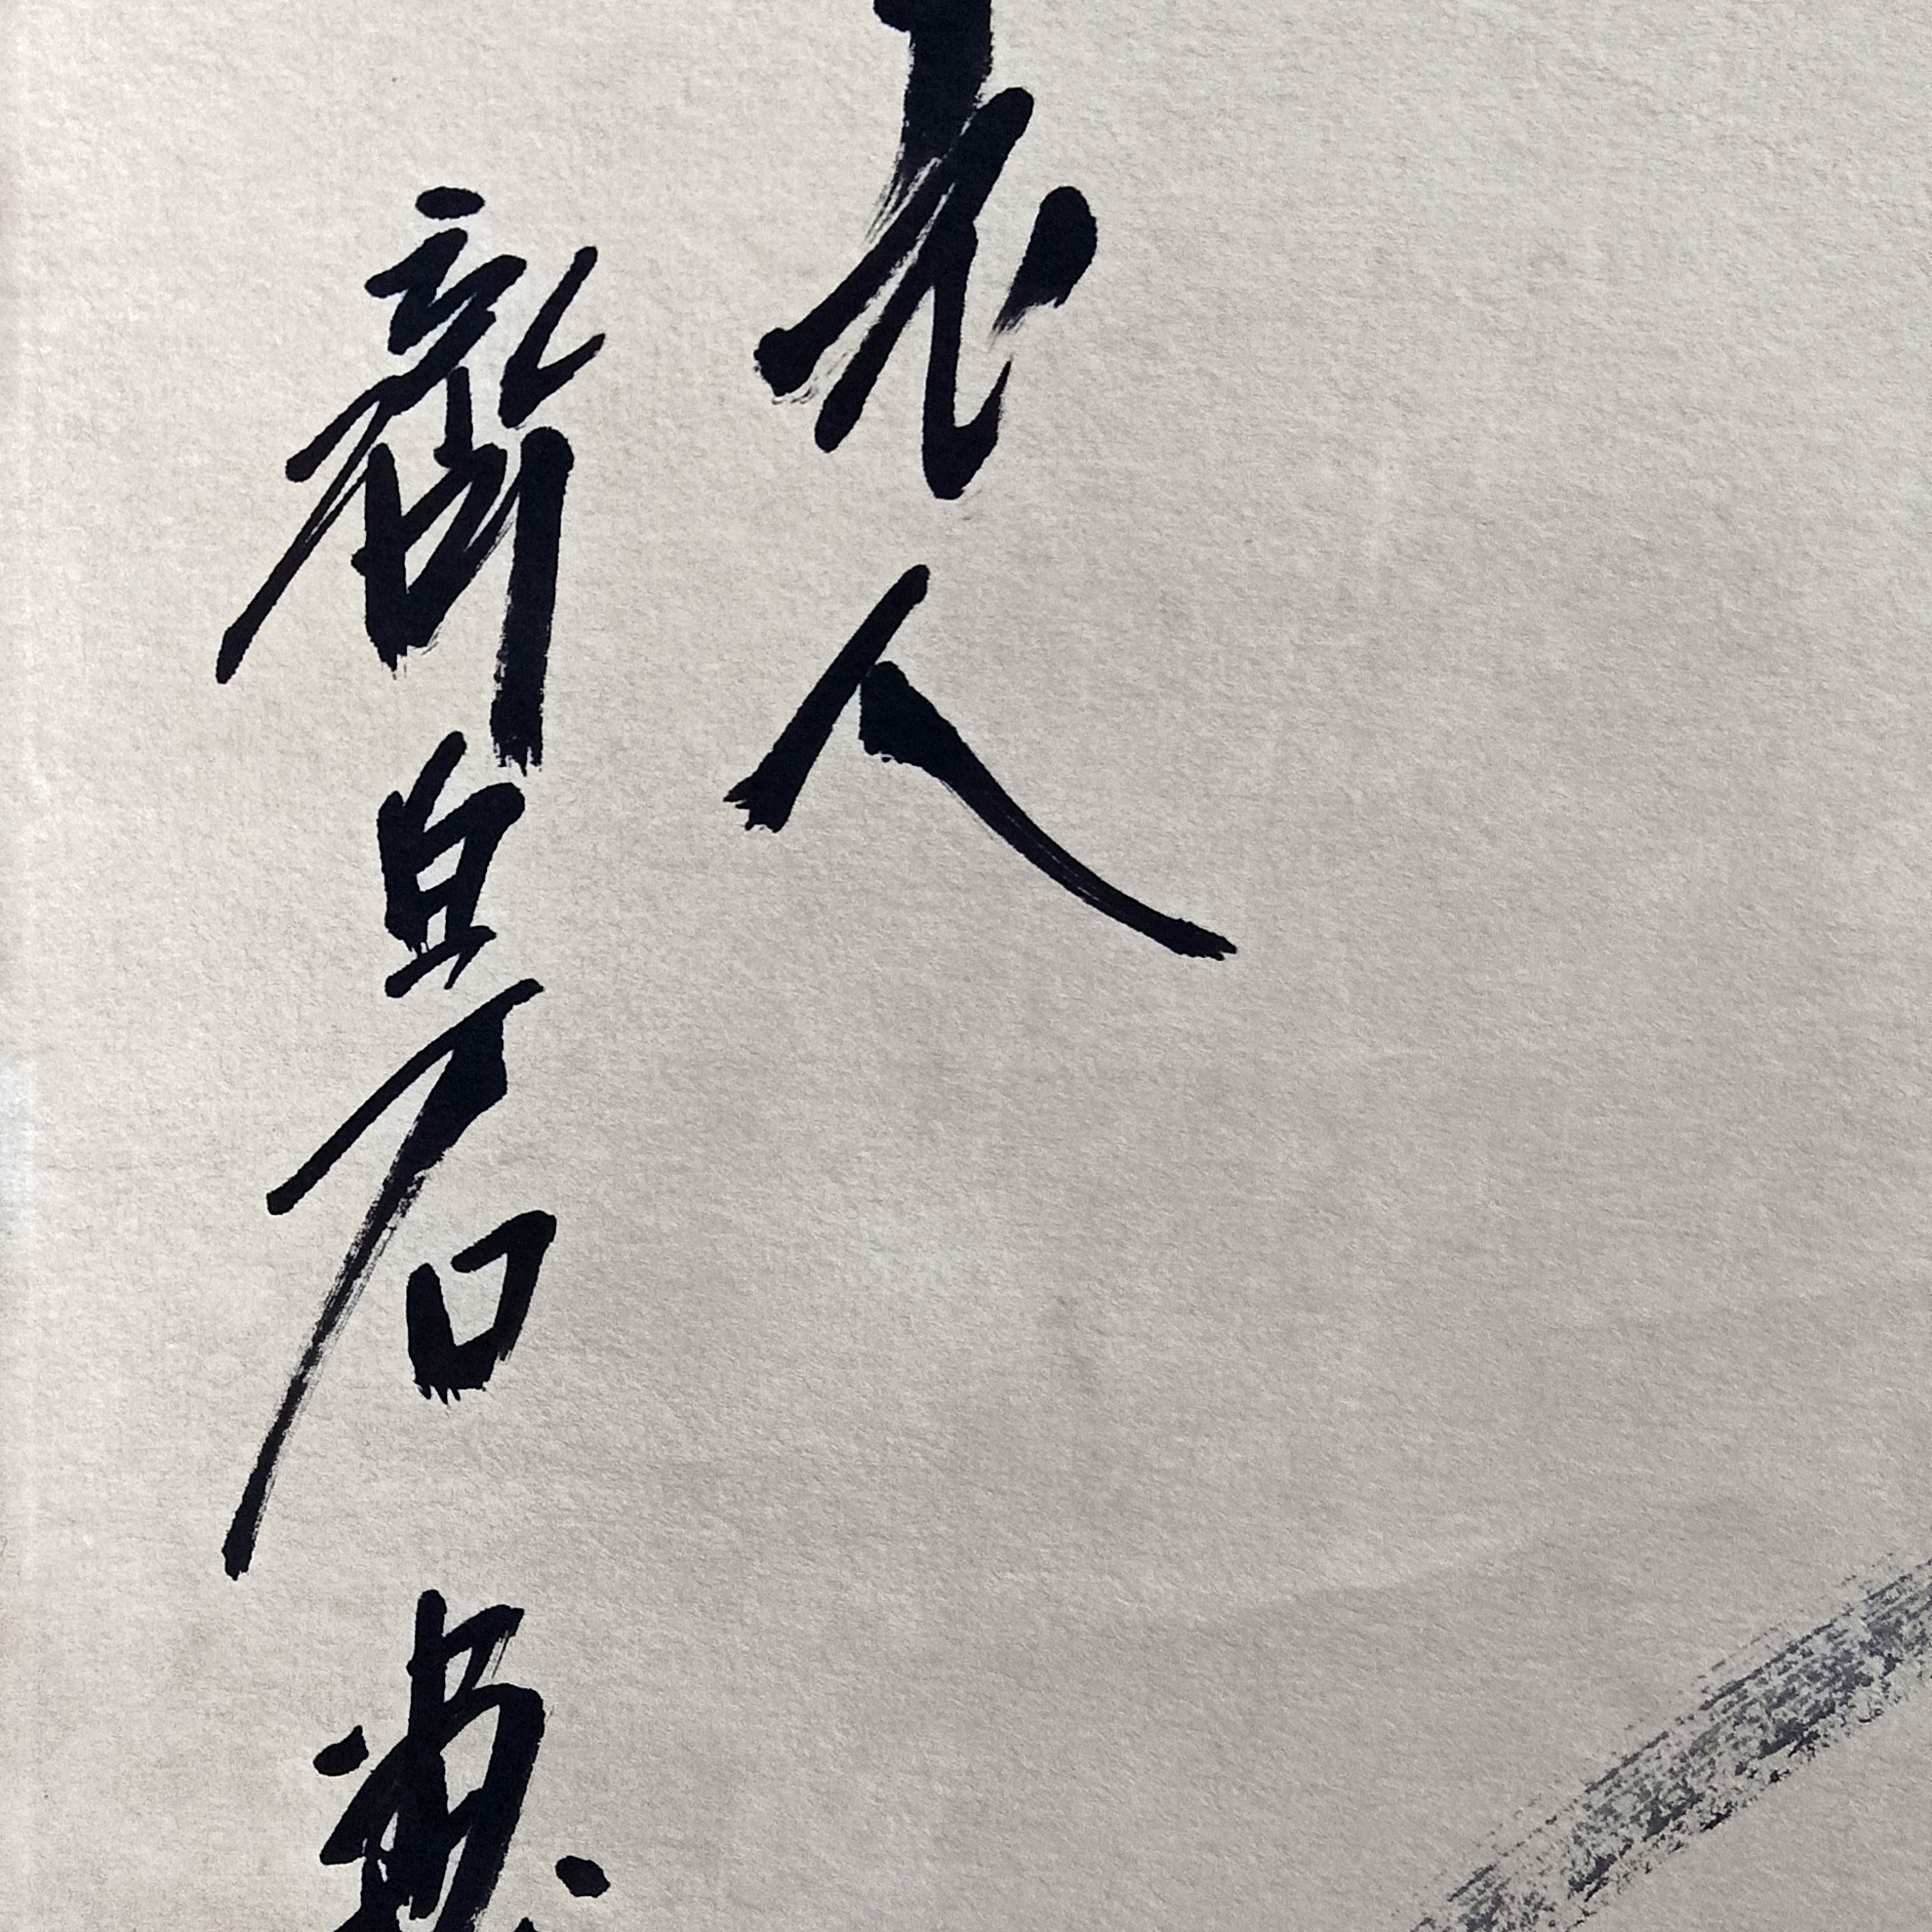 老人
齊白石畫